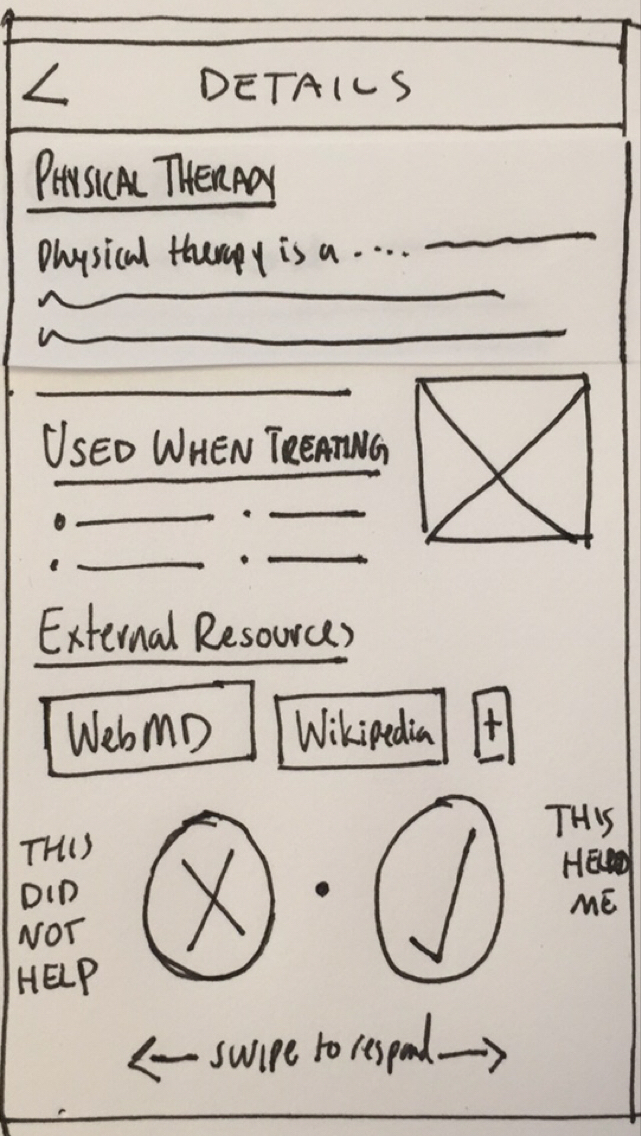 < DETAILS
PHYSICAL THERAPY
Physical therapy is a ....
USED WHEN TREATING
External Resources
WebMD Wikipedia +
THIS DID NOT HELP
THIS HELPED ME
← swipe to respond →